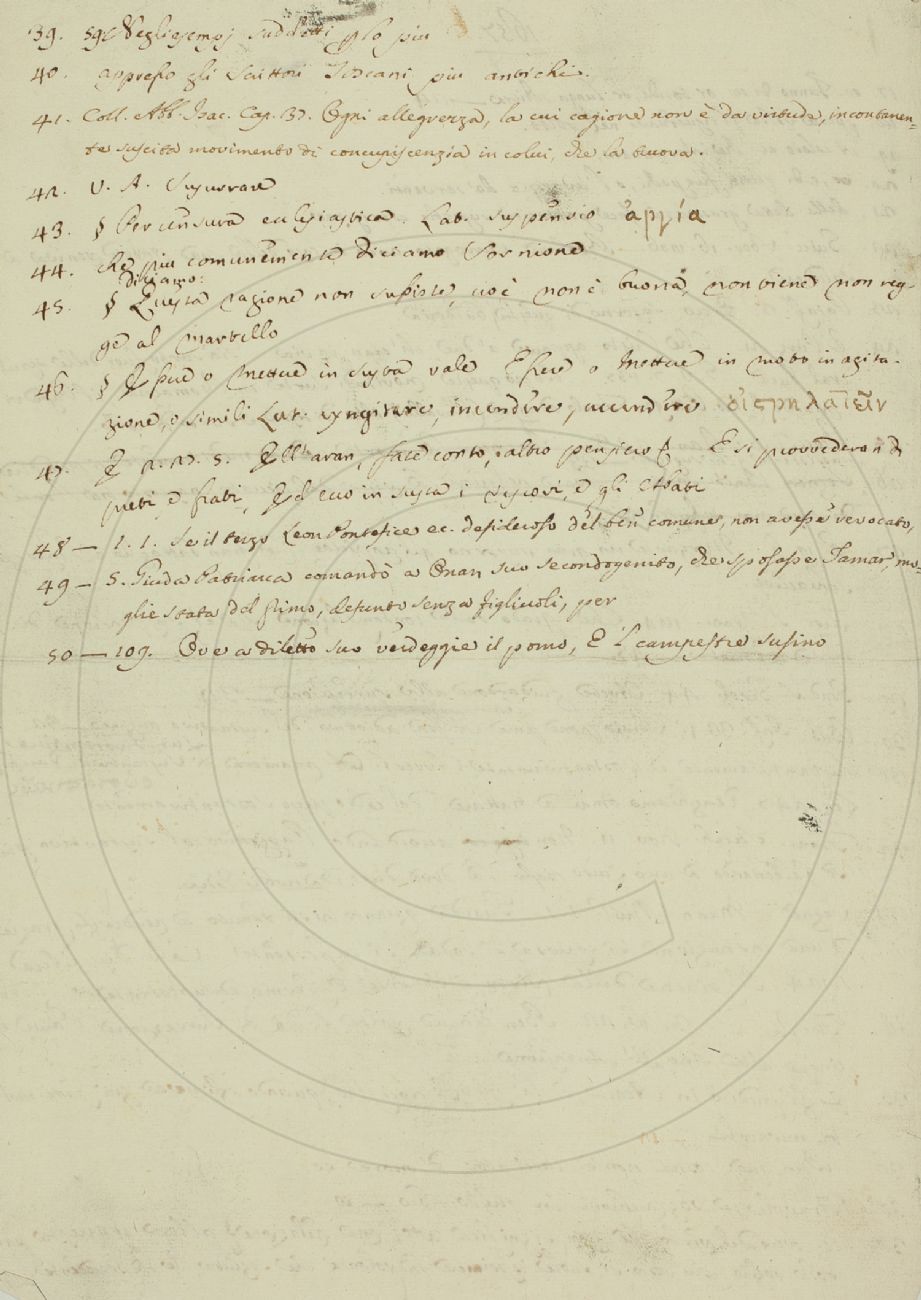 39. 59. Negli esempj suddetti p lo più
40. appresso gli Scittori Toscani piu antichi.
41. Coll. Abb. Isac. Cap. 37. Ogni allegrezza, la cui cagione non è da virtude, incontanen=
te suscita movimento di concupiscenzia in colui, che la truova.
42. V. A. Susurrare
43. § Per censura eclesiastica. Lat. suspensio ἀργία
44. che piu comunemente diciamo Sornione
diciamo:
45. § Questa ragione non susiste, cioè non è buona, non tiene non reg-
ge al martello
46. § o Mettere in susta vale Essere o Mettere in moto in agita-
zione, e simili Lat. incitare, incendere, accendere
47. altro pensiero E si provvederon di
preti e frati, in susta i Vescovi, e gli Abati
48 — 1. 1. Se il terzo Leon Pontefice ec. desideroso del ben comune, non avesse revocato,
49 — 5. Giuda Patriarca comandò a Onan suo secondogenito, che sposasse Tamar, mo=
glie stata del primo, defunto senza figliuoli, per
50 — 109. Ove a diletto suo verdeggie il pomo, E 'l campestre susino